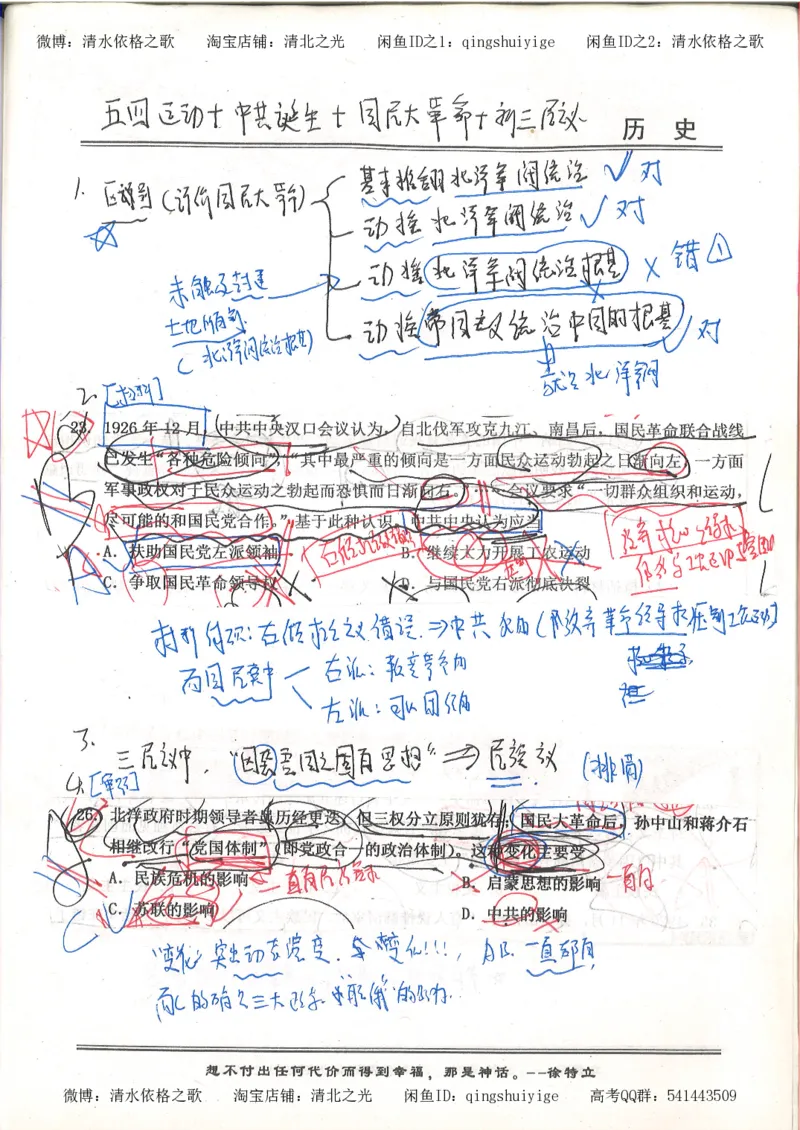 微博：清水依格之歌 淘宝店铺：清北之光 闲鱼ID之1：qingshuiyige 闲鱼ID之2：清水依格之歌
五四运动+中共诞生+国民大革命+新三民主义
历 史
1. 区辨别（评价国民大革命）
基本推翻北洋军阀统治 ✓ 对
动摇北洋军阀统治 ✓ 对
动摇北洋军阀统治根基 × 错 ①
动摇帝国主义统治中国的根基 ✓ 对
未触及封建
土地制度
（北洋军阀统治根基）
就是北洋军阀
2. [材料]
23. 1926年12月，中共中央汉口会议认为，自北伐军攻克九江、南昌后，国民革命联合战线
已发生“各种危险倾向”，“其中最严重的倾向是一方面民众运动勃起之日渐向左，一方面
军事政权对于民众运动之勃起而恐惧而日渐向右。”会议要求“一切群众组织和运动，
尽可能的和国民党合作。”基于此种认识，中共中央认为应当
A．扶助国民党左派领袖 B．继续大力开展工农运动
C．争取国民革命领导权 D．与国民党右派彻底决裂
材料体现：右倾机会主义错误 ⇒ 中共
而国民党中
右派：
左派：可以团结
3. 三民主义中，“因袭吾国之固有思想” ⇒ 民族主义（排满）
4. [审题]
26. 北洋政府时期领导者虽历经更迭，但三权分立原则犹存；国民大革命后，孙中山和蒋介石
相继改行“党国体制”（即党政合一的政治体制）。这种变化主要受
A．民族危机的影响 B．启蒙思想的影响 一直有
C．苏联的影响 D．中共的影响
“变化”突出动态演变，要变化!!!，A、B一直都有
想不付出任何代价而得到幸福，那是神话。--徐特立
微博：清水依格之歌 淘宝店铺：清北之光 闲鱼ID：qingshuiyige 高考QQ群：541443509